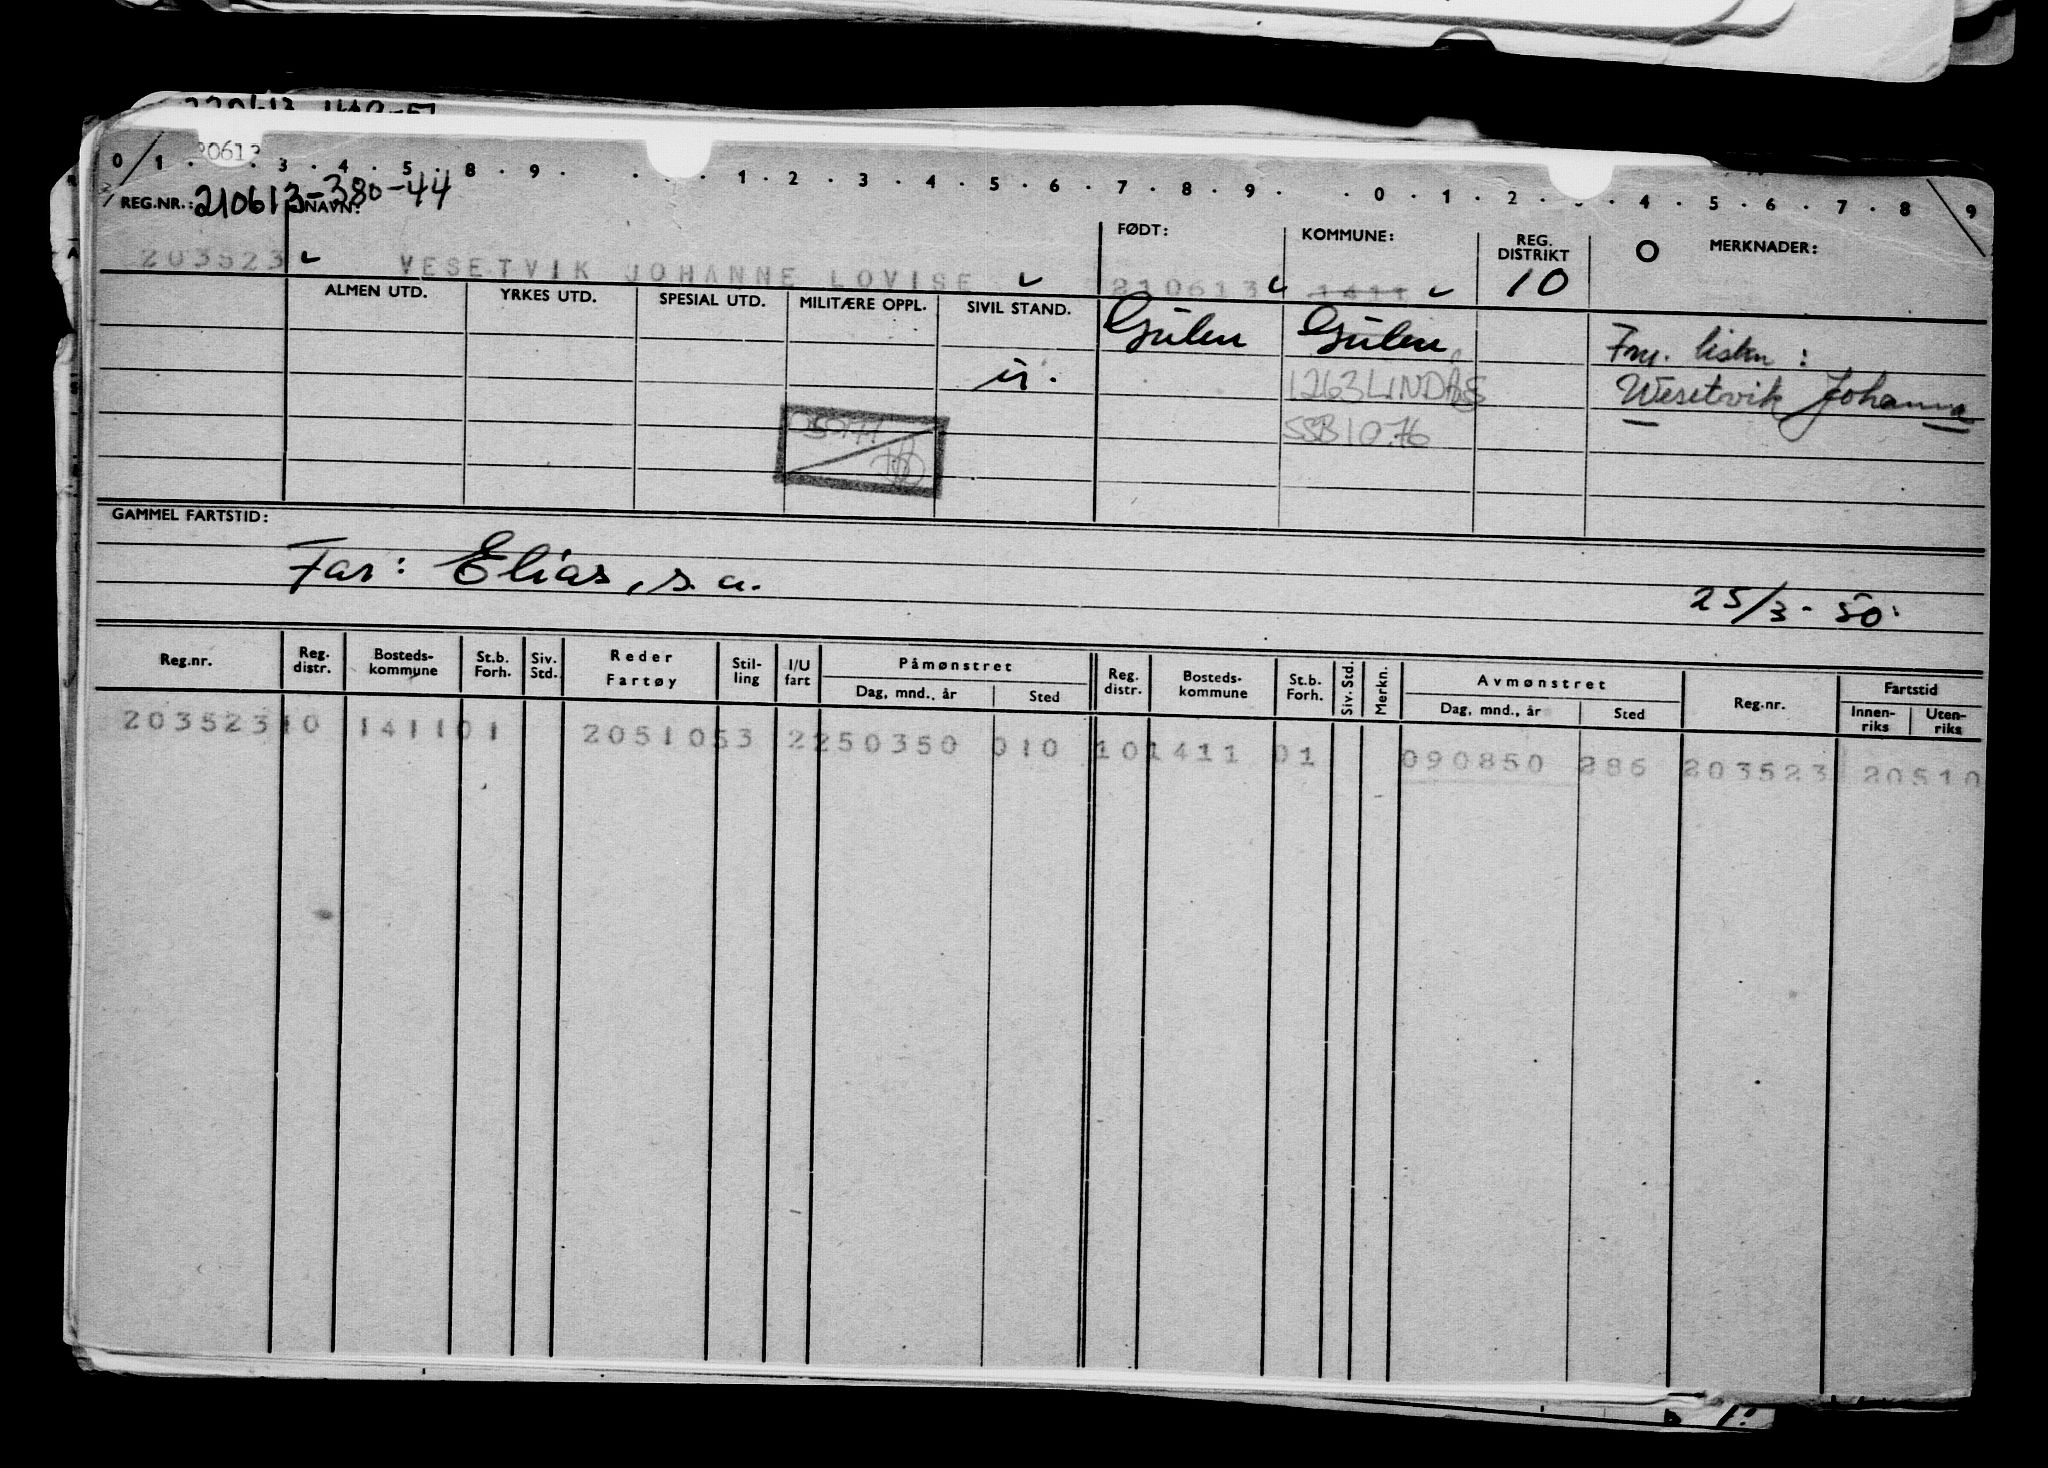 0 1 . 20613 . 3 . 4 . 5 . 8 . 9 . . . . 1 . 2 . 3 . 4 . 5 . 6 . 7 . 8 . 9 . . 0 . 1 . 2 . . 4 . 5 . 6 . 7 . 8 9
REG.NR.: 210613-380-44 NAVN:
FØDT: KOMMUNE: REG. DISTRIKT MERKNADER:
203523 VESETVIK JOHANNE LOVISE 210613 1411 10
ALMEN UTD. YRKES UTD. SPESIAL UTD. MILITÆRE OPPL. SIVIL STAND.
Gulen Gulen
1263 LINDÅS Wesetvik Johanna
SSB 10.76
GAMMEL FARTSTID:
Far: Elias, s. a. 25/3-50.
Reg.nr. Reg. distr. Bosteds-kommune St.b. Forh. Siv. Std. Reder Fartøy Stil-ling I/U fart Påmønstret Dag, mnd., år Sted Reg. distr. Bosteds-kommune St.b. Forh. Siv. Std. Merkn. Avmønstret Dag, mnd., år Sted Reg.nr. Fartstid Innen-riks Uten-riks
203523 10 1411 01 2051053 2 250350 010 10 1411 01 090850 286 203523 20510